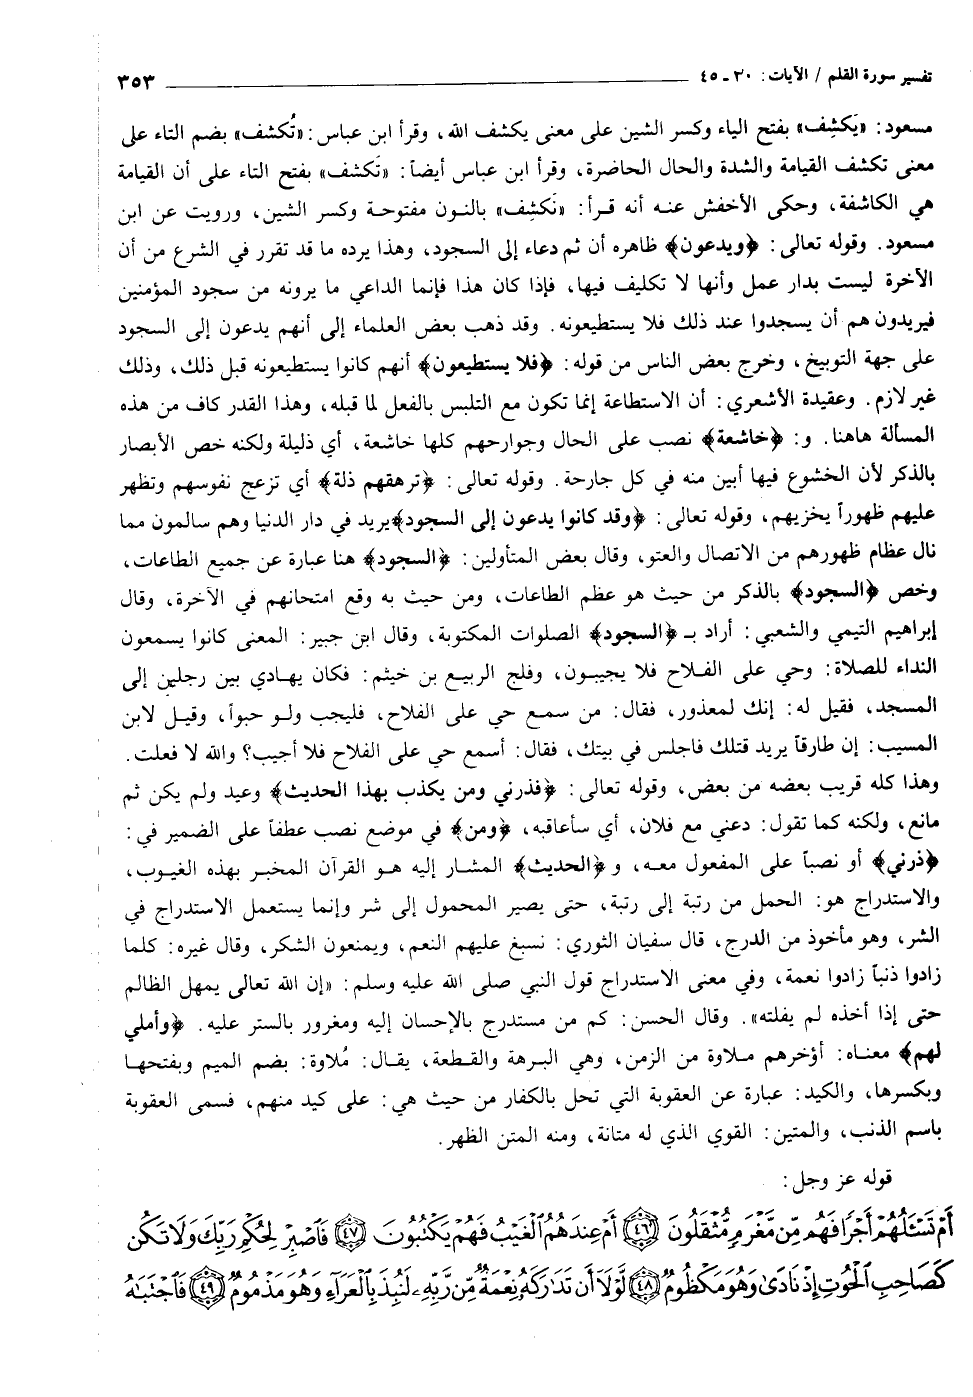 تفسير سورة القلم / الآيات: ٣٠ ـ ٤٥ ٣٥٣
مسعود: «يَكشِف» بفتح الياء وكسر الشين على معنى يكشف الله، وقرأ ابن عباس: «تُكشف» بضم التاء على
معنى تكشف القيامة والشدة والحال الحاضرة، وقرأ ابن عباس أيضاً: «تَكشف» بفتح التاء على أن القيامة
هي الكاشفة، وحكى الأخفش عنه أنه قرأ: «نَكشِف» بالنون مفتوحة وكسر الشين، ورويت عن ابن
مسعود. وقوله تعالى: ﴿ويدعون﴾ ظاهره أن ثم دعاء إلى السجود، وهذا يرده ما قد تقرر في الشرع من أن
الآخرة ليست بدار عمل وأنها لا تكليف فيها، فإذا كان هذا فإنما الداعي ما يرونه من سجود المؤمنين
فيريدون هم أن يسجدوا عند ذلك فلا يستطيعونه. وقد ذهب بعض العلماء إلى أنهم يدعون إلى السجود
على جهة التوبيخ، وخرج بعض الناس من قوله: ﴿فلا يستطيعون﴾ أنهم كانوا يستطيعونه قبل ذلك، وذلك
غير لازم. وعقيدة الأشعري: أن الاستطاعة إنما تكون مع التلبس بالفعل لما قبله، وهذا القدر كاف من هذه
المسألة هاهنا. و: ﴿خاشعة﴾ نصب على الحال وجوارحهم كلها خاشعة، أي ذليلة ولكنه خص الأبصار
بالذكر لأن الخشوع فيها أبين منه في كل جارحة. وقوله تعالى: ﴿ترهقهم ذلة﴾ أي تزعج نفوسهم وتظهر
عليهم ظهوراً يخزيهم، وقوله تعالى: ﴿وقد كانوا يدعون إلى السجود﴾يريد في دار الدنيا وهم سالمون مما
نال عظام ظهورهم من الاتصال والعتو، وقال بعض المتأولين: ﴿السجود﴾ هنا عبارة عن جميع الطاعات،
وخص ﴿السجود﴾ بالذكر من حيث هو عظم الطاعات، ومن حيث به وقع امتحانهم في الآخرة، وقال
إبراهيم التيمي والشعبي: أراد بـ ﴿السجود﴾ الصلوات المكتوبة، وقال ابن جبير: المعنى كانوا يسمعون
النداء للصلاة: وحي على الفلاح فلا يجيبون، وفلج الربيع بن خيثم: فكان يهادي بين رجلين إلى
المسجد، فقيل له: إنك لمعذور، فقال: من سمع حي على الفلاح، فليجب ولو حبواً، وقيل لابن
المسيب: إن طارقاً يريد قتلك فاجلس في بيتك، فقال: أسمع حي على الفلاح فلا أجيب؟ والله لا فعلت.
وهذا كله قريب بعضه من بعض، وقوله تعالى: ﴿فذرني ومن يكذب بهذا الحديث﴾ وعيد ولم يكن ثم
مانع، ولكنه كما تقول: دعني مع فلان، أي سأعاقبه، ﴿ومن﴾ في موضع نصب عطفاً على الضمير في:
﴿ذرني﴾ أو نصباً على المفعول معه، و ﴿الحديث﴾ المشار إليه هو القرآن المخبر بهذه الغيوب،
والاستدراج هو: الحمل من رتبة إلى رتبة، حتى يصير المحمول إلى شر وإنما يستعمل الاستدراج في
الشر، وهو مأخوذ من الدرج، قال سفيان الثوري: نسبغ عليهم النعم، ويمنعون الشكر، وقال غيره: كلما
زادوا ذنباً زادوا نعمة، وفي معنى الاستدراج قول النبي صلى الله عليه وسلم: «إن الله تعالى يمهل الظالم
حتى إذا أخذه لم يفلته». وقال الحسن: كم من مستدرج بالإحسان إليه ومغرور بالستر عليه. ﴿وأملي
لهم﴾ معناه: أؤخرهم ملاوة من الزمن، وهي البرهة والقطعة، يقال: مُلاوة: بضم الميم وبفتحها
وبكسرها، والكيد: عبارة عن العقوبة التي تحل بالكفار من حيث هي: على كيد منهم، فسمى العقوبة
باسم الذنب، والمتين: القوي الذي له متانة، ومنه المتن الظهر.
قوله عز وجل:
أَمْ تَسْـَٔلُهُمْ أَجْرًا فَهُم مِّن مَّغْرَمٍ مُّثْقَلُونَ ﴿٤٦﴾ أَمْ عِندَهُمُ ٱلْغَيْبُ فَهُمْ يَكْتُبُونَ ﴿٤٧﴾ فَٱصْبِرْ لِحُكْمِ رَبِّكَ وَلَا تَكُن
كَصَاحِبِ ٱلْحُوتِ إِذْ نَادَىٰ وَهُوَ مَكْظُومٌ ﴿٤٨﴾ لَّوْلَآ أَن تَدَٰرَكَهُۥ نِعْمَةٌ مِّن رَّبِّهِۦ لَنُبِذَ بِٱلْعَرَآءِ وَهُوَ مَذْمُومٌ ﴿٤٩﴾ فَٱجْتَبَٰهُ